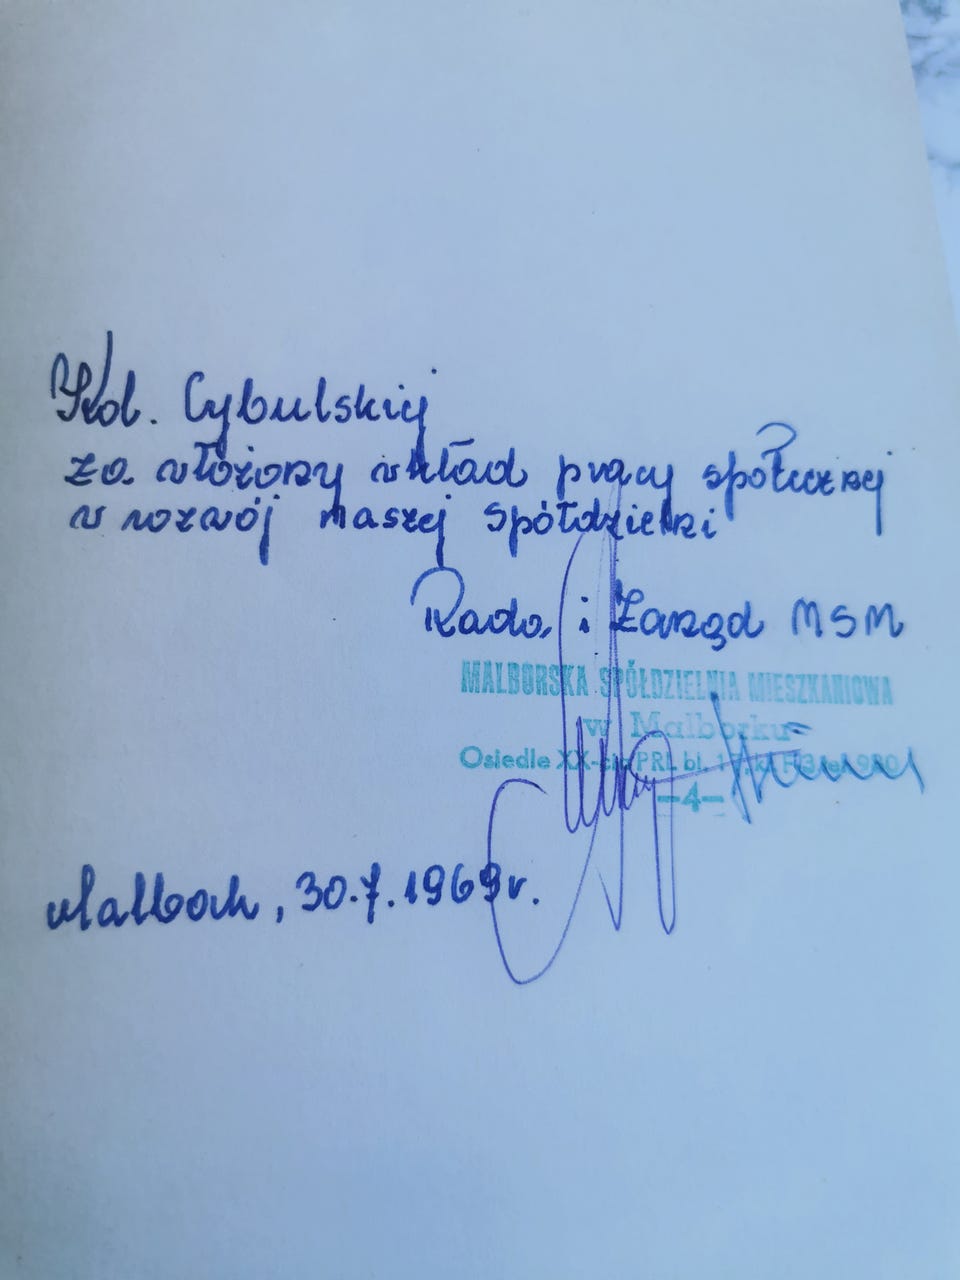 Kol. Cybulskiej
za włożony wkład pracy społecznej
w rozwój naszej Spółdzielni
Rada i Zarząd MSM
MALBORSKA SPÓŁDZIELNIA MIESZKANIOWA
w Malborku
Osiedle XX-cio PRL bl.
—4—
Malbork, 30.7.1969r.